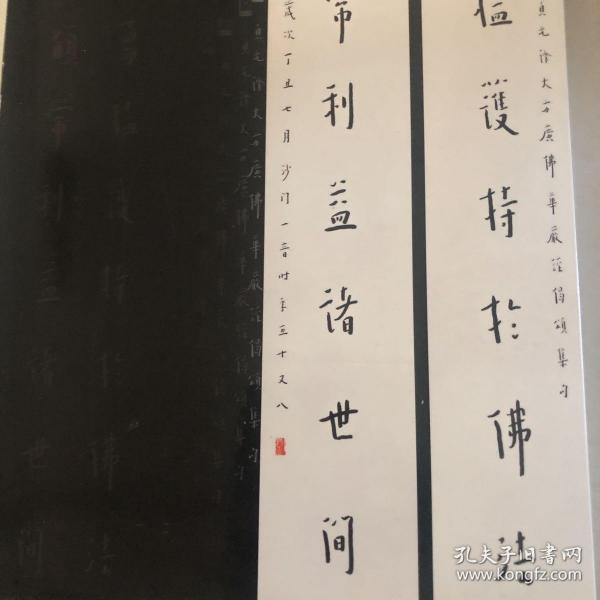 貞元譯大方廣佛華嚴經偈頌集句
護持於佛法
常利益諸世間
歲次丁丑七月沙門一音時年五十又八
孔夫子旧书网
www.kongfz.com